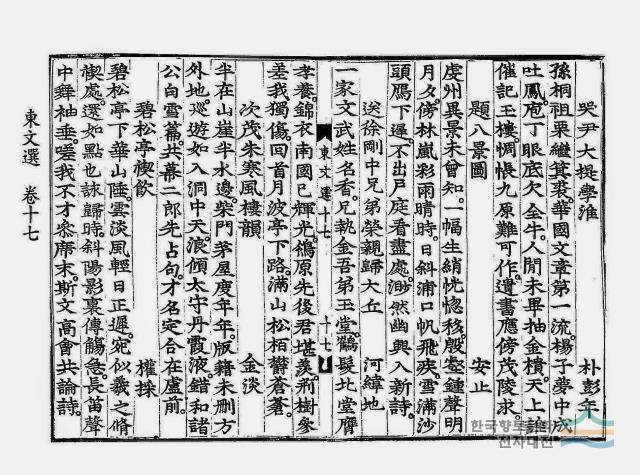 哭尹大提學淮
朴彭年
孫桐祖栗繼箕裘。華國文章第一流。楊子夢中成
吐鳳。庖丁眼底欠全牛。人間未畢抽金樻。天上
催記玉樓。惆悵九原難可作。遺書應傍茂陵求。
題八景圖
安止
虔州異景未曾知。一幅生綃恍惚移。殷壑鍾聲明
月夕。傍林嵐彩雨晴時。日斜浦口帆飛疾。雪滿沙
頭鴈下遲。不出戶庭看盡處。渺然幽興入新詩
送徐剛中兄弟榮親歸大丘
河緯地
一家文武姓名香。兄執金吾弟玉堂。鶴髮北堂膺
孝養。錦衣南國已輝光。鴒原先後君堪羨。荊樹參
差我獨傷。回首月波亭下路。滿山松栢欝蒼蒼。
次茂朱寒風樓韻
金淡
半在山崖半水邊。柴門茅屋度年年。版籍未刪方
外地。巡遊如入洞中天。浪傾太守丹霞液。錯和諸
公白雪篇。共喜二郎先占句。才名定合在盧前。
碧松亭禊飮
權採
碧松亭下華山陲。雲淡風輕日正遲。宛似羲之脩
禊處。還如點也詠歸時。斜陽影裏傳觴急。長笛聲
中舞袖垂。嗟我不才叅席末。斯文高會共論詩。
東文選十七
十七
東文選 卷十七
한국향토문화
전자대전